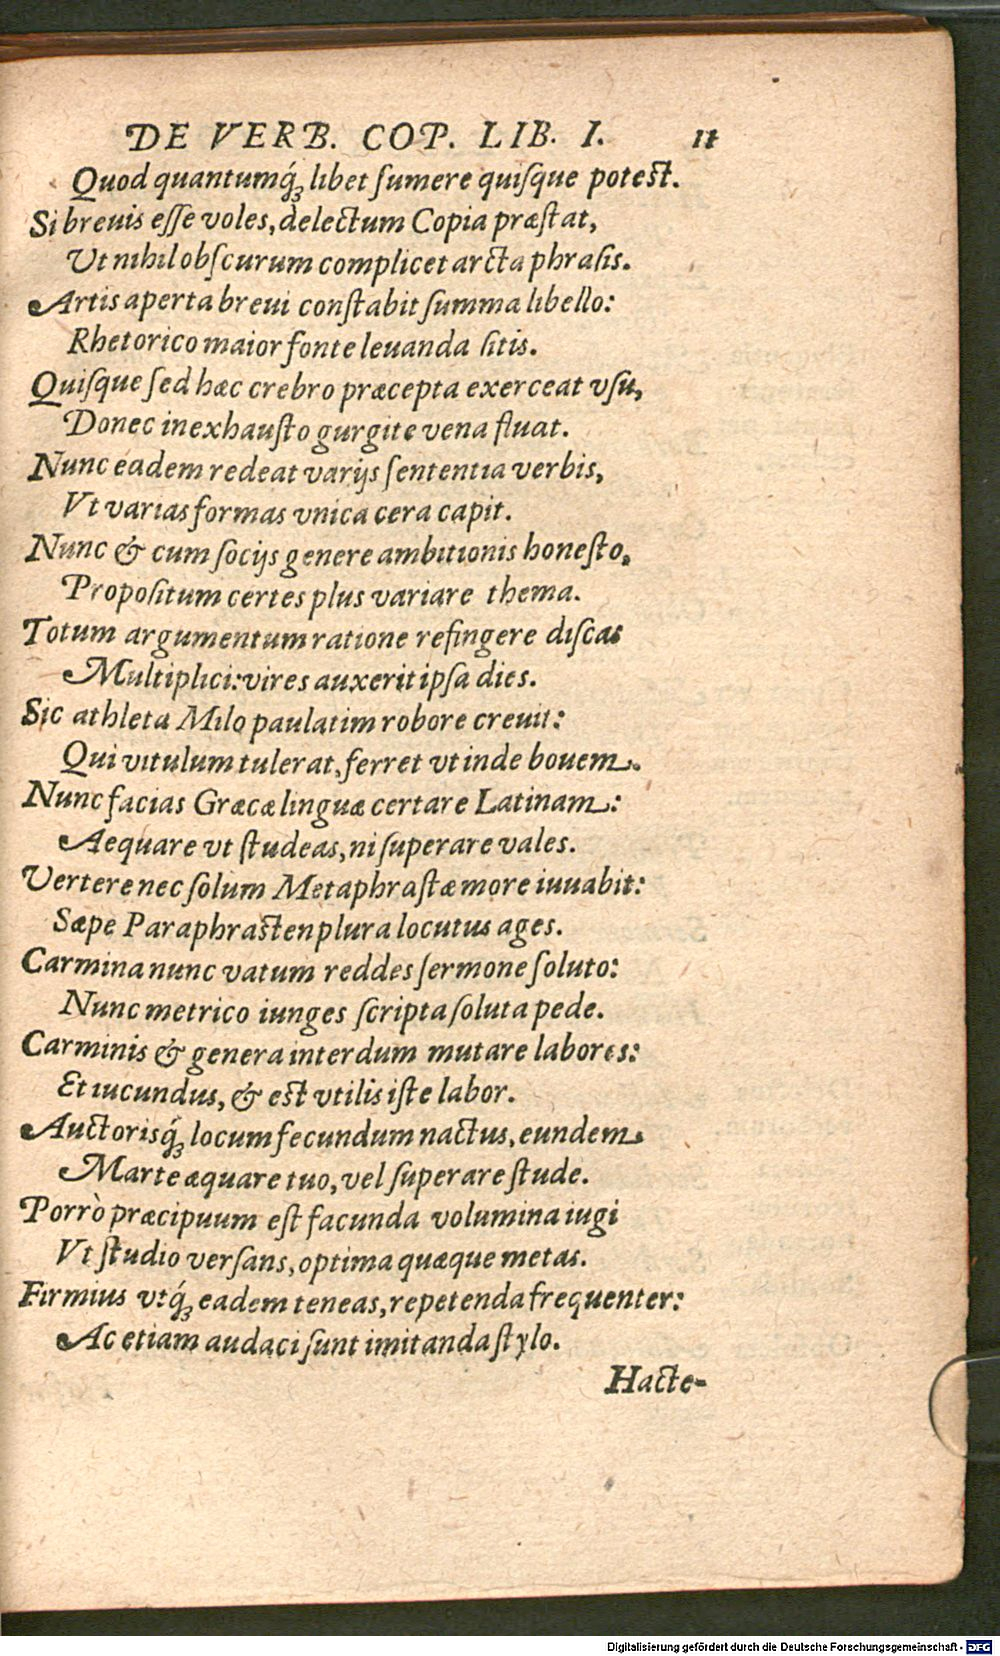 DE VERB. COP. LIB. I. 11
Quod quantumq́ꝫ libet ſumere quiſque potest.
Si breuis eſſe voles, delectum Copia præſtat,
Ut nihil obſcurum complicet arcta phraſis.
Artis aperta breui conſtabit ſumma libello:
Rhetorico maior fonte leuanda ſitis.
Quiſque ſed hæc crebro præcepta exerceat vſu,
Donec inexhauſto gurgite vena fluat.
Nunc eadem redeat varijs ſententia verbis,
Vt varias formas vnica cera capit.
Nunc & cum ſocijs genere ambitionis honeſto,
Propoſitum certes plus variare thema.
Totum argumentum ratione refingere diſcas
Multiplici: vires auxerit ipſa dies.
Sic athleta Milo paulatim robore creuit:
Qui vitulum tulerat, ferret vt inde bouem.
Nunc facias Græcæ linguæ certare Latinam:
Aequare vt ſtudeas, ni ſuperare vales.
Vertere nec ſolum Metaphraſtæ more iuuabit:
Sæpe Paraphrasten plura locutus ages.
Carmina nunc vatum reddes ſermone ſoluto:
Nunc metrico iunges ſcripta ſoluta pede.
Carminis & genera interdum mutare labores:
Et iucundus, & est vtilis iſte labor.
Auctorisq́ꝫ locum fecundum nactus, eundem
Marte æquare tuo, vel ſuperare ſtude.
Porrò præcipuum eſt facunda volumina iugi
Vt ſtudio verſans, optima quæque metas.
Firmius vtq́ꝫ eadem teneas, repetenda frequenter:
Ac etiam audaci ſunt imitanda ſtylo.
Hacte-
Digitalisierung gefördert durch die Deutsche Forschungsgemeinschaft - DFG